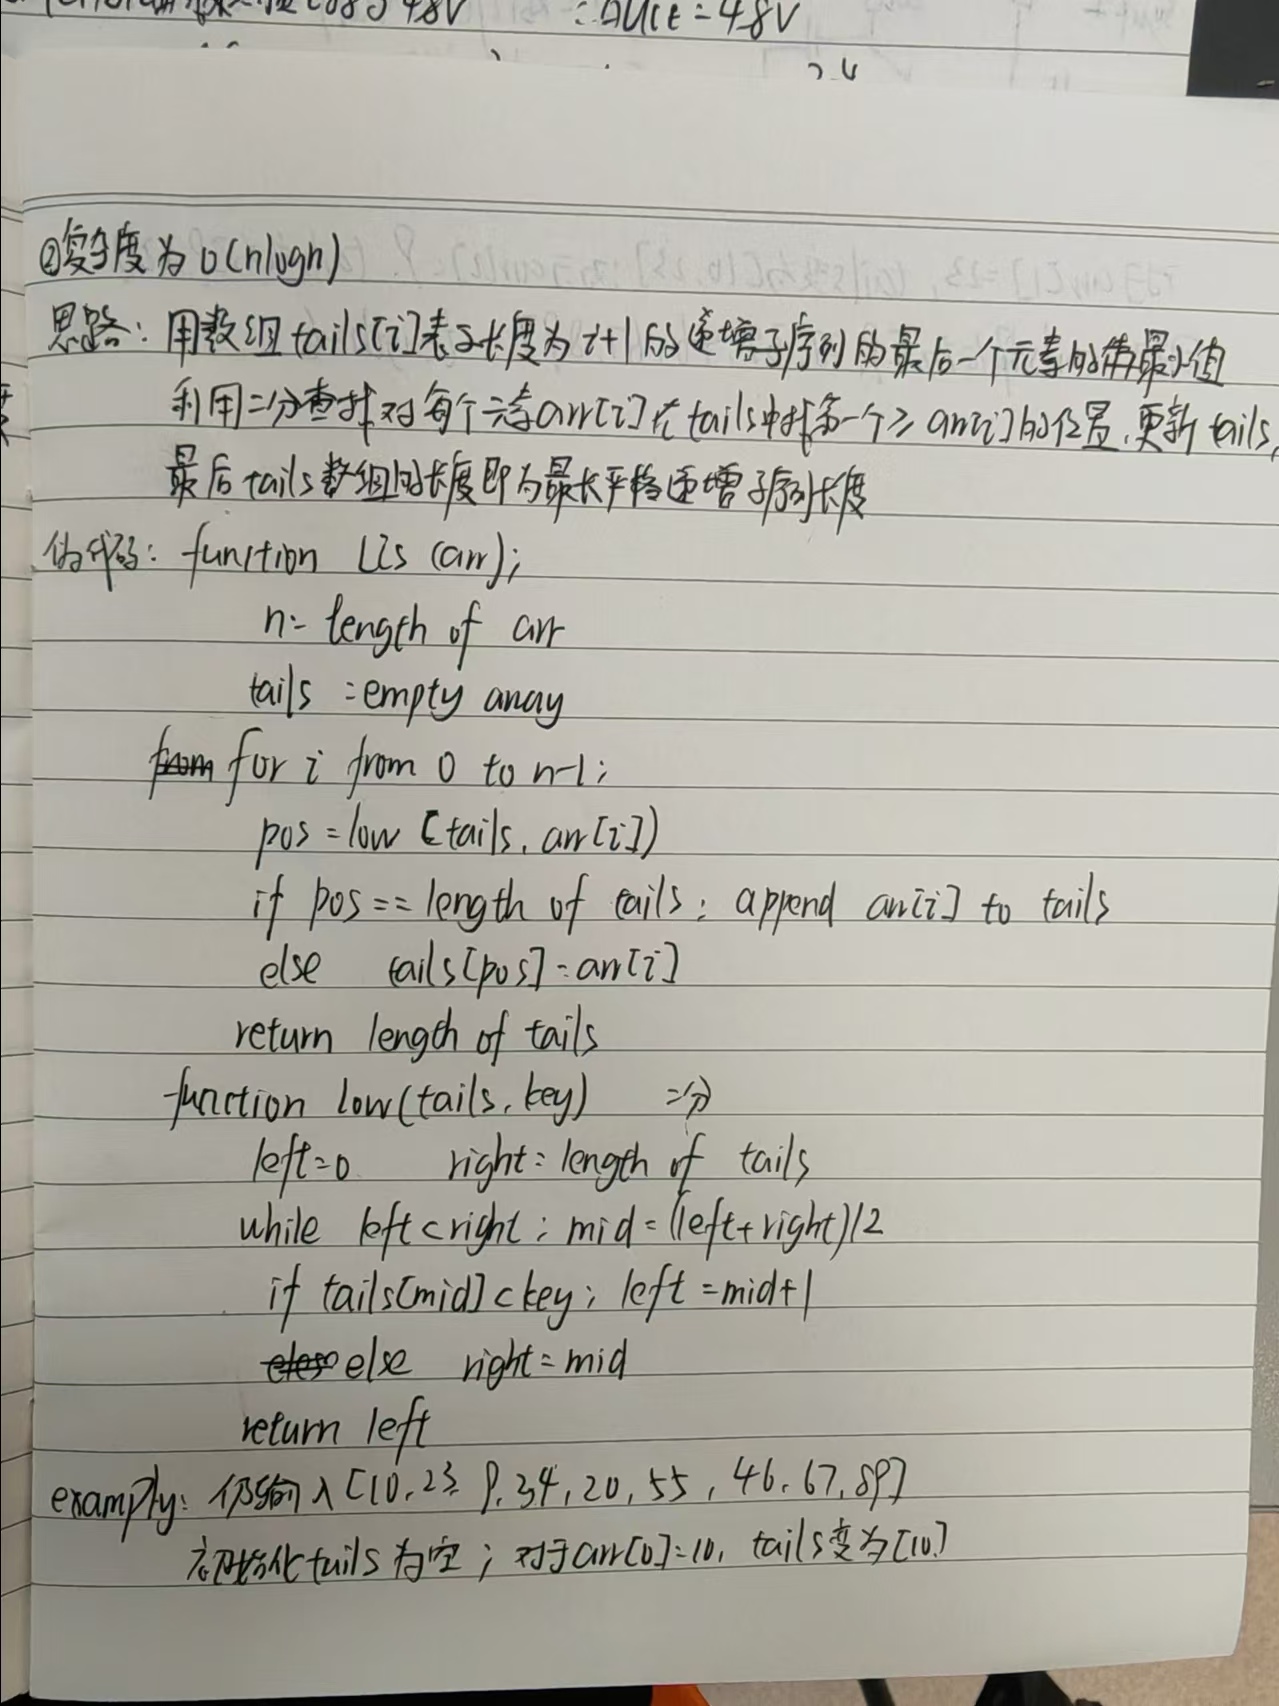 :. ΔUCE=48V
②复杂度为O(nlogn)
思路：用数组tails[i]表示长度为i+1的递增子序列的最后一个元素的最小值
利用二分查找对每个元素arr[i]在tails中找第一个≥arr[i]的位置,更新tails,
最后tails数组的长度即为最长严格递增子序列长度
伪代码：function LIS(arr);
n=length of arr
tails =empty array
for i from 0 to n-1:
pos=low [tails, arr[i])
if pos==length of tails: append arr[i] to tails
else tails[pos]=arr[i]
return length of tails
function low(tails, key) 二分
left=0 right=length of tails
while left<right: mid=(left+right)/2
if tails[mid]<key; left=mid+1
else right=mid
return left
examply: 仍输入[10,23,9,34,20,55,46,67,89]
初始化tails为空；对于arr[0]=10, tails变为[10]